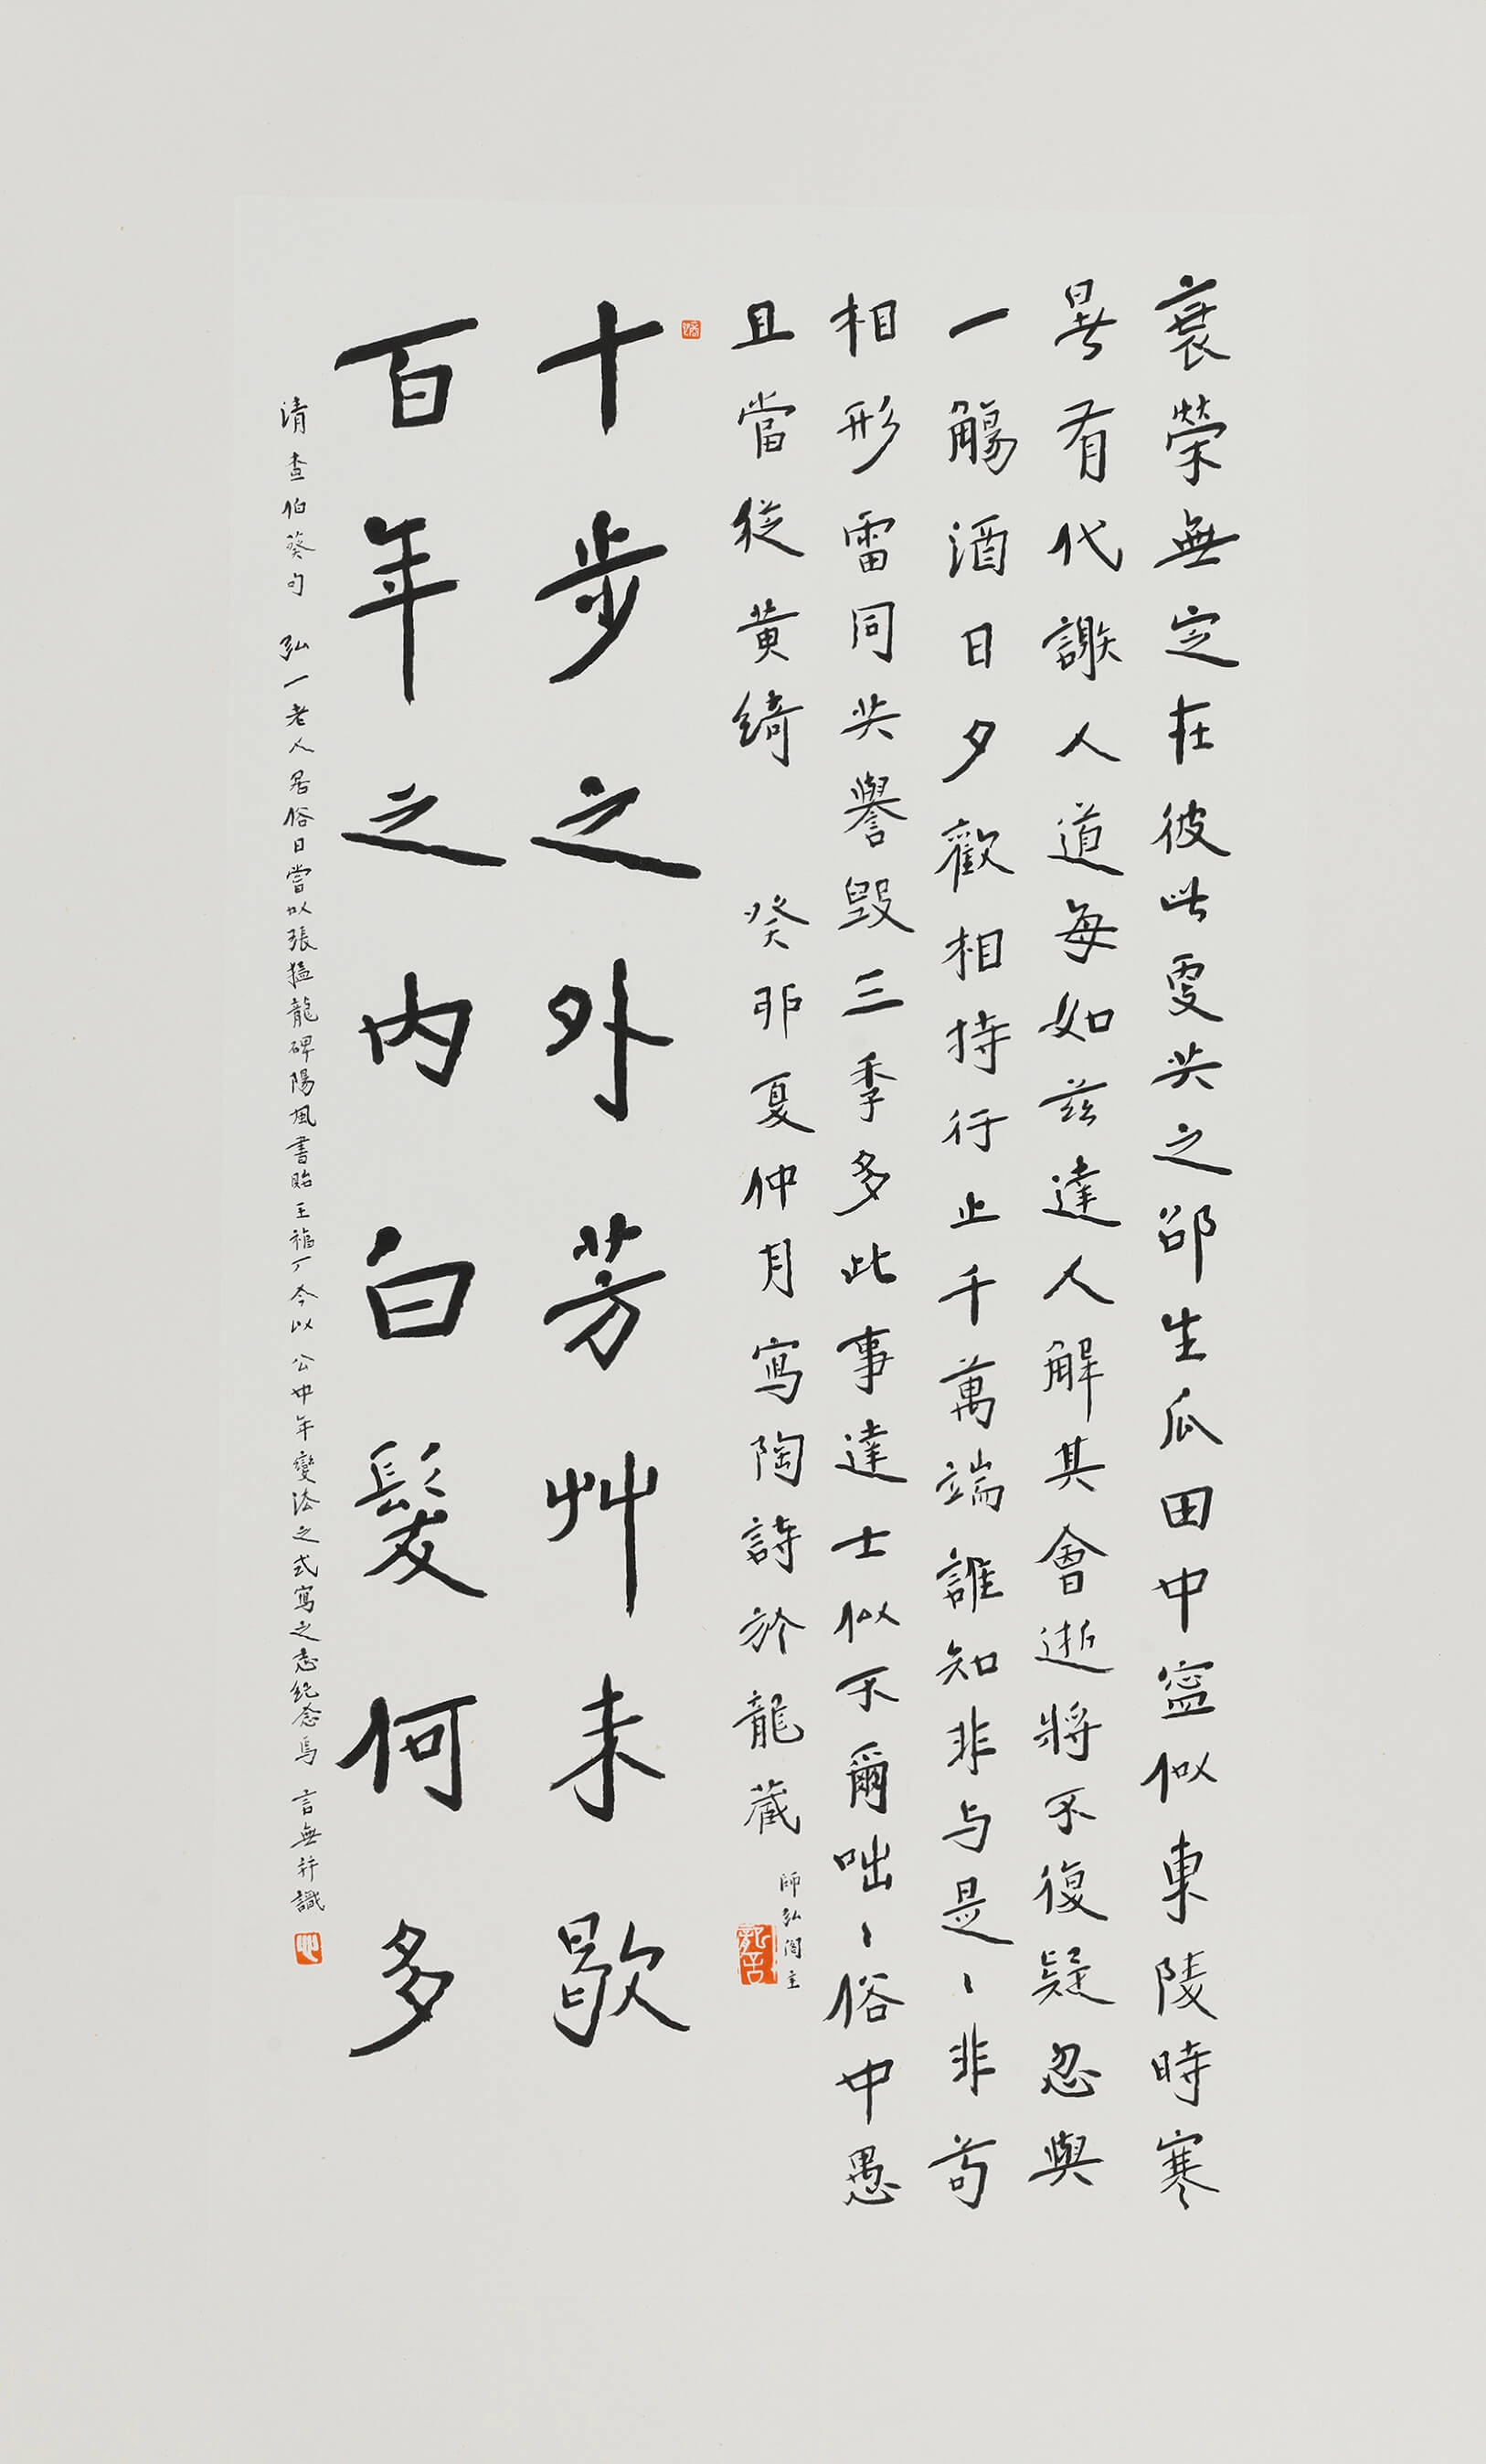 衰榮無定在彼此更共之邵生瓜田中寧似東陵時寒
暑有代謝人道每如茲達人解其會逝將不復疑忽與
一觴酒日夕歡相持行止千萬端誰知非与是〻非苟
相形雷同共譽毀三季多此事達士似不爾咄〻俗中愚
且當從黃綺 癸卯夏仲月寫陶詩於龍藏
師弘閣主
十步之外芳艸未歇
百年之內白髮何多
清查伯葵句 弘一老人居俗日嘗以張猛龍碑陽風書貽王福厂今以公中年變法之式寫之志紀念焉 言無并識